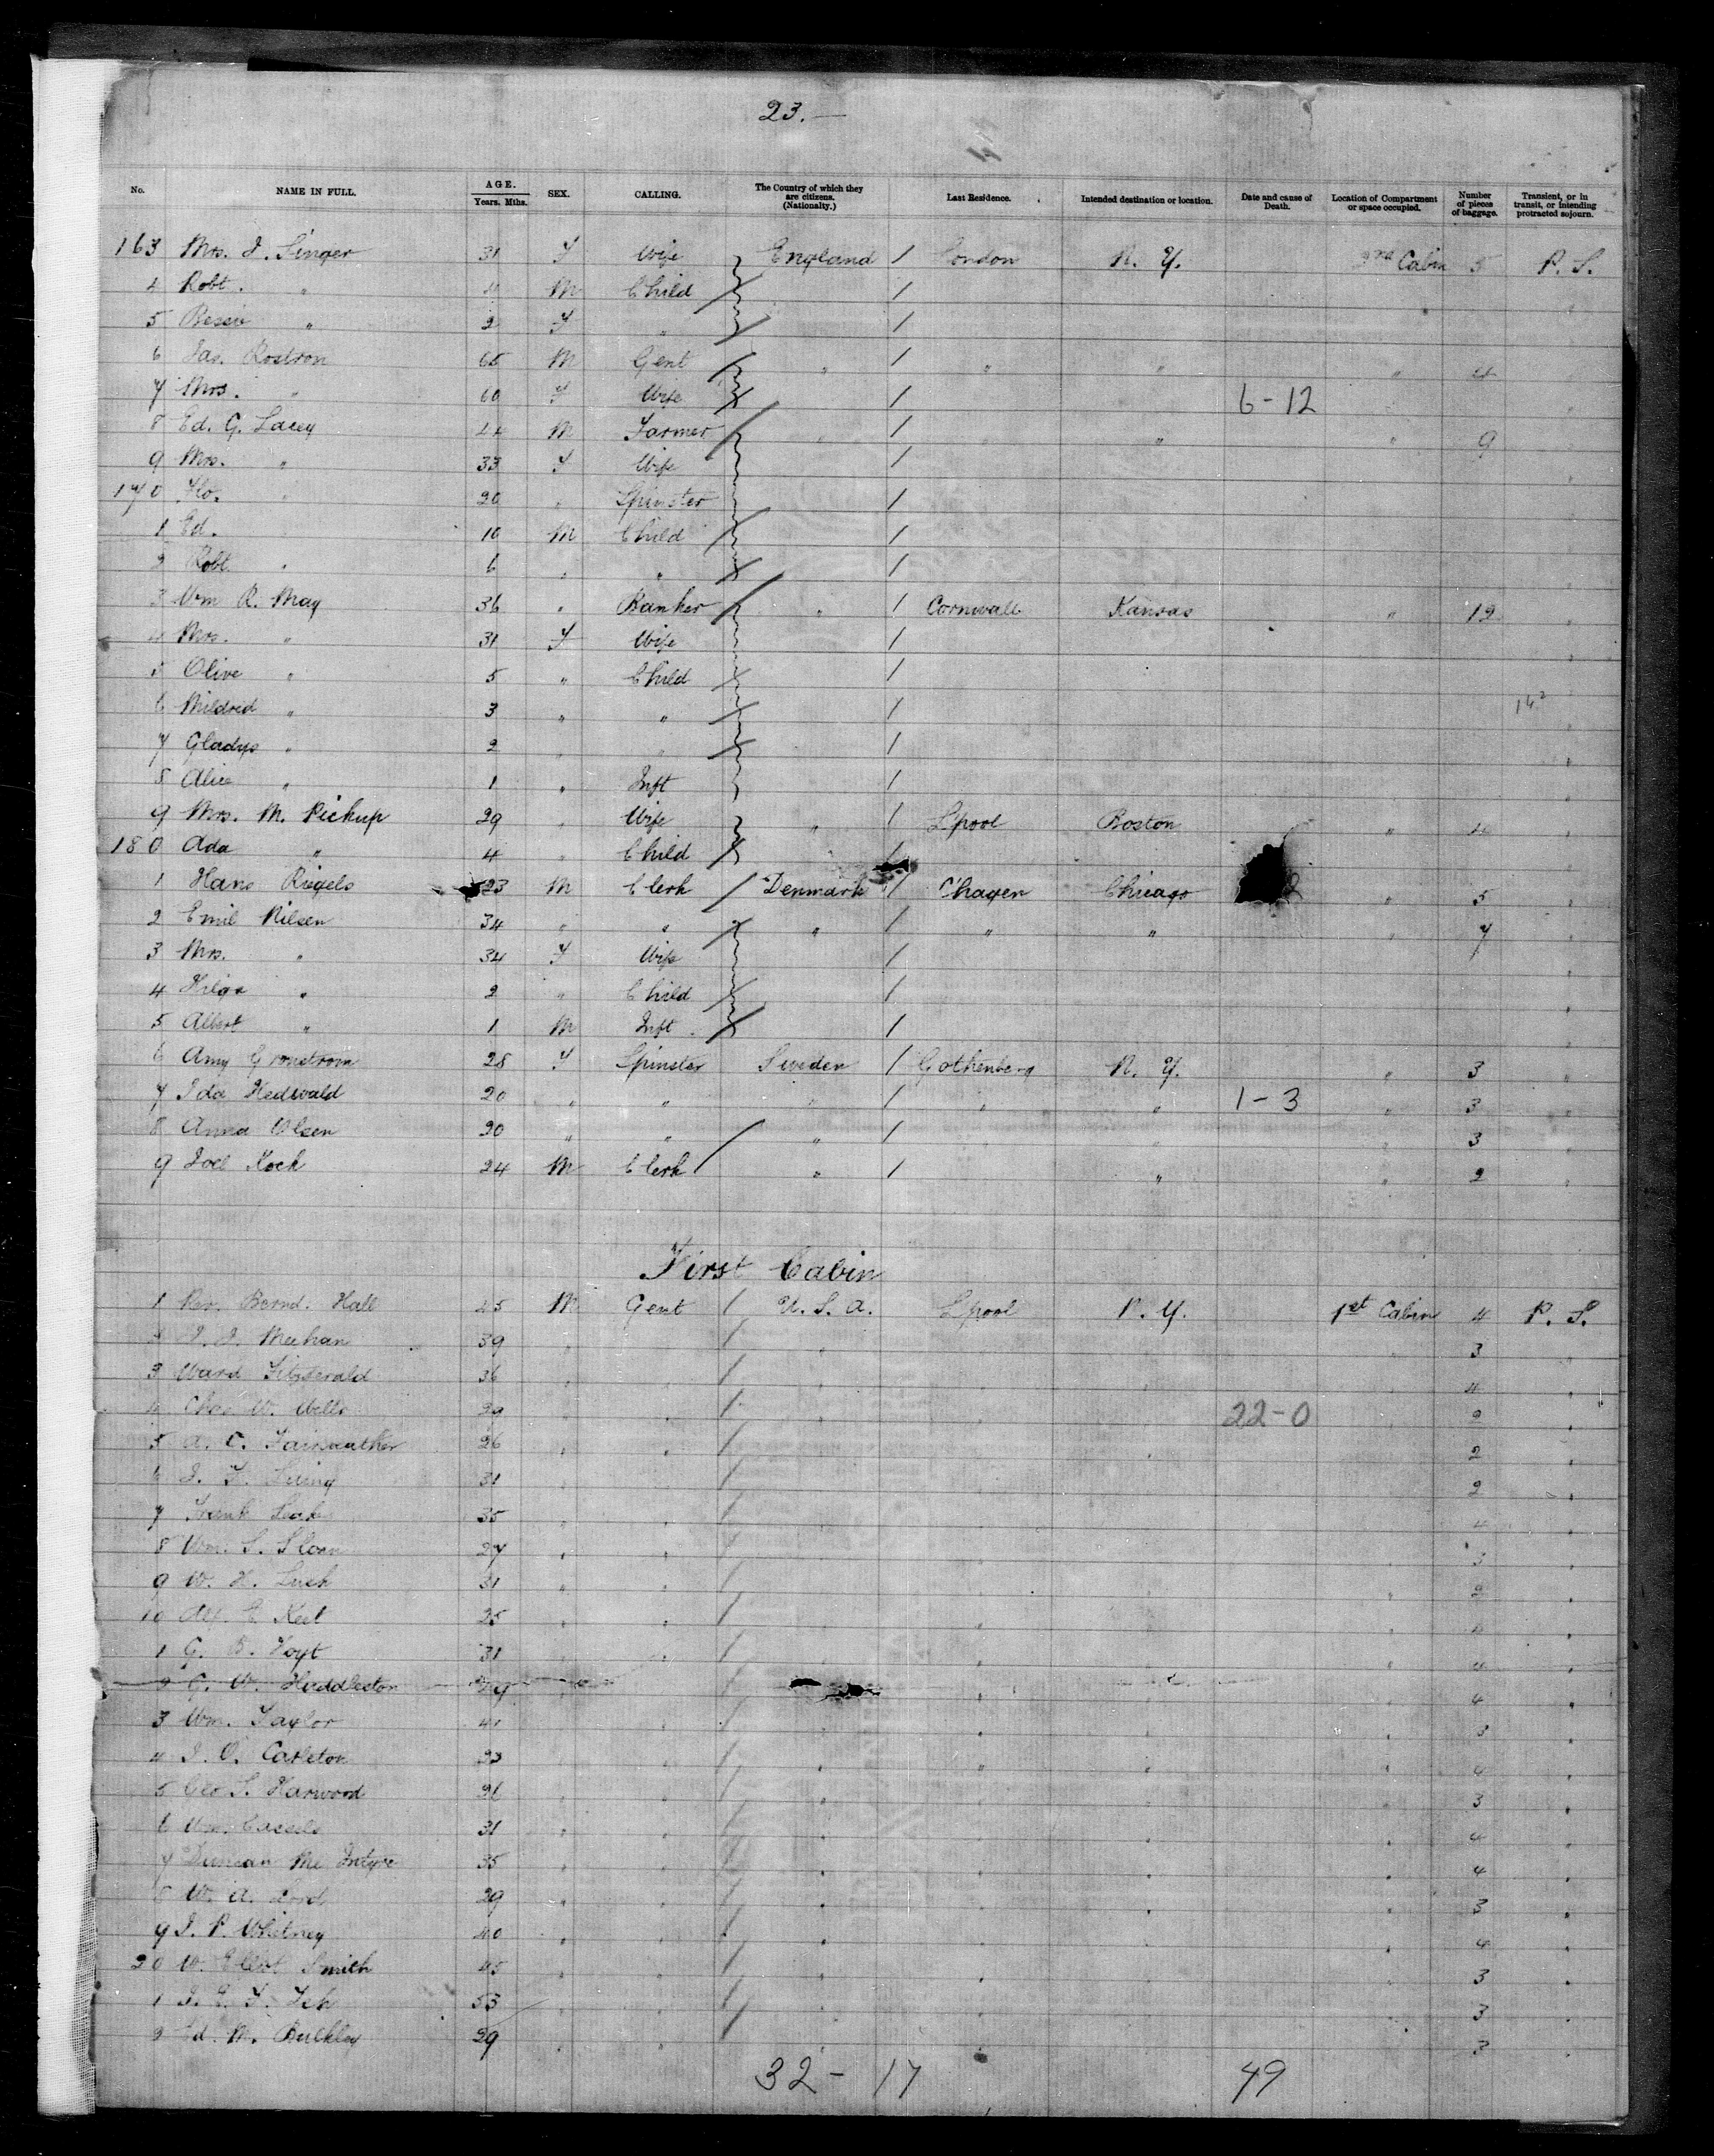 23.—
No. NAME IN FULL. AGE. Years. Mths. SEX. CALLING. The Country of which they are citizens. (Nationalty.) Last Residence. Intended destination or location. Date and cause of Death. Location of Compartment or space occupied. Number of pieces of baggage. Transient, or in transit, or intending protracted sojourn.
163 Mrs. J. Singer 31 F Wife England / London N. Y. 2nd Cabin 5 P. S.
4 Robt. " 4 M Child /
5 Bessie " 2 F " /
6 Jas. Rostron 65 M Gent " / " " " 4
7 Mrs. " 60 F Wife / 6-12
8 Ed. G. Lacey 44 M Farmer " / " " 9
9 Mrs. " 33 F Wife /
170 Flo. " 20 " Spinster /
1 Ed. 10 M Child /
2 Robt. " 6 " " /
3 Wm R. May 36 " Banker " / Cornwall Kansas " 12 "
4 Mrs. " 31 F Wife /
5 Olive " 5 " Child /
6 Mildred " 3 " " /
7 Gladys " 2 " " /
8 Alice " 1 " Inft /
9 Mrs. M. Pickup 29 " Wife " / Lpool Boston " 4 "
180 Ada " 4 " Child /
1 Hans Riegels 23 M Clerk / Denmark / C'hagen Chicago " 5 "
2 Emil Nilsen 34 " " " / " " " 7 "
3 Mrs. " 34 F Wife /
4 Hilga " 2 " Child /
5 Albert " 1 M Inft. /
6 Amy Gronstrom 28 F Spinster Sweden / Gothenberg N. Y. " 3 "
7 Ida Hedwald 20 " " " / " " 1-3 " 3 "
8 Anna Olsen 20 " " " / " 3 "
9 Joel Koch 24 M Clerk / " / " " 2 "
First Cabin
1 Rev. Bernd. Hall 45 M Gent / U. S. A. Lpool N. Y. 1st Cabin 4 P. S.
2 J. J. Meehan 39 / 3
3 Ward Fitzgerald 36 / 4
4 Chas W. Wells 29 / 22-0 2
5 A. C. Fairweather 26 / 2
6 J. F. 31 / 2
7 Frank 35 / 4
8 Wm. S. Sloan 27 / 3
9 W. H. Lusk 31 / 2
10 Alf. E. 25 / 4
1 G. B. Hoyt 31 / 4
2 G. W. Huddleston 29 / 4
3 Wm. Taylor 41 / 3
4 J. O. Carleton 33 / 4
5 Geo S. Harwood 36 / 3
6 Wm. Cassels 31 / 4
7 Duncan Mc Intyre 35 / 4
8 W. A. Lord 29 / 3
9 J. P. Whitney 40 / 4
20 W. Elliot Smith 45 / 3
1 J. E. F. 53 / 3
2 Ed. M. Bulkley 29 / 3
32 - 17 49